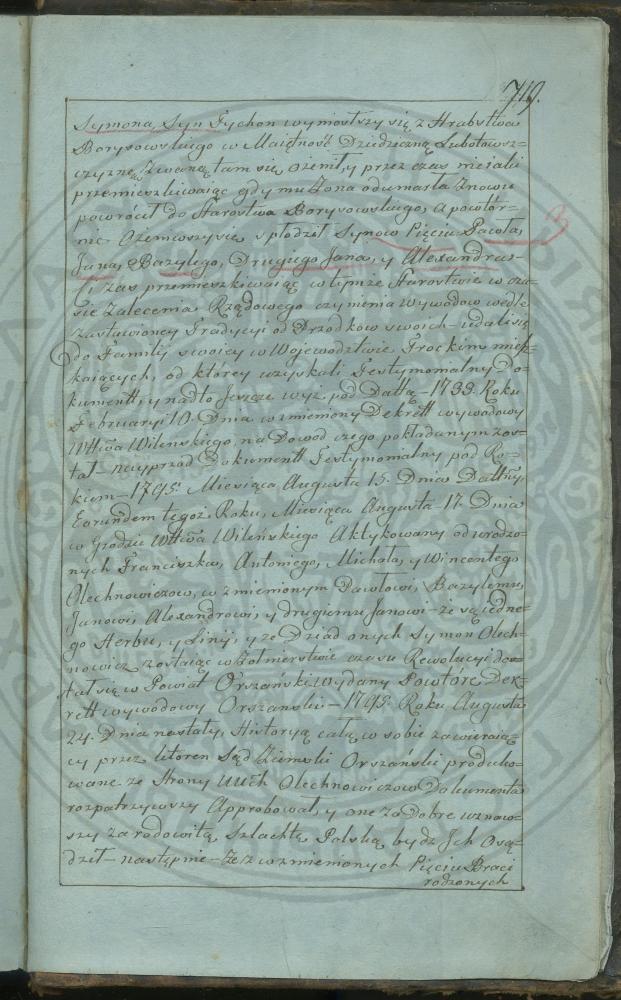 719.
Symona, Syn Tychon wyniosłszy się z Hrabstwa
Borysowskiego w Maiętność Dziedziczną Lubotowsz-
czyznę Zwaną, tam się ożenił, y przez czas nieiaki
przemieszkiwaiąc gdy mu Żona odumarła Znowu
powrócił do Starostwa Borysowskiego, a powtór-
nie Ożeniwszy się, spłodził Synow Pięciu Pawła,
Jana, Bazylego, Drugiego Jana, y Alexandra -
Ci zas przemieszkiwaiąc w tymże Starostwie w cza-
sie Zalecenia Rządowego czynienia wywodow wedle
zastawioney Tradycyi od Przodkow swoich - udali się
do Familij swoiey w Wojewodztwie Trockim miesz-
kaiących, od ktorey uzyskali Testymonialny Do-
kumentt, y nadto Jeszcze wyż. pod Dattą - 1733. Roku
Februaryi 10. Dnia wzmieniony Dekrett wywodowy
Wttwa Wilenskiego, na Dowód czego pokładanym zos-
tał - nayprzod Dokumentt Testymonialny pod Ro-
kiem - 1795. Miesiąca Augusta 15. Dnia Dattny,
Eorundem tegoż Roku, Miesiąca Augusta 17. Dnia
w Grodzie Wttwa Wileńskiego Aktykowany od urodzo-
nych Franciszka, Antoniego, Michała, y Wincentego
Olechnowiczow, wzmienionym Pawłowi, Bazylemu,
Janowi, Alexandrowi, y drugiemu Janowi - ze są iedne-
go Herbu, y Linij, y ze Dziad onych Symon Olech-
nowicz zostaiąc w Żołnierstwie czasu Rewolucyi dos-
tał się w Powiat Orszański, wydany Powtore Dek-
rett wywodowy Orszanski - 1795. Roku Augusta
24. Dnia nastały, Historyą całą w sobie zawieraią-
cy przez ktoren Sąd Ziemski Orszański produko-
wane ze Strony UUch Olechnowiczow Dokumenta
rozpatrzywszy Approbował, y one za Dobre uznaw-
szy za rodowitą Szlachtę Polską bydz Ich Osą-
dził - następnie - że z wzmienionych Pięciu Braci
rodzonych